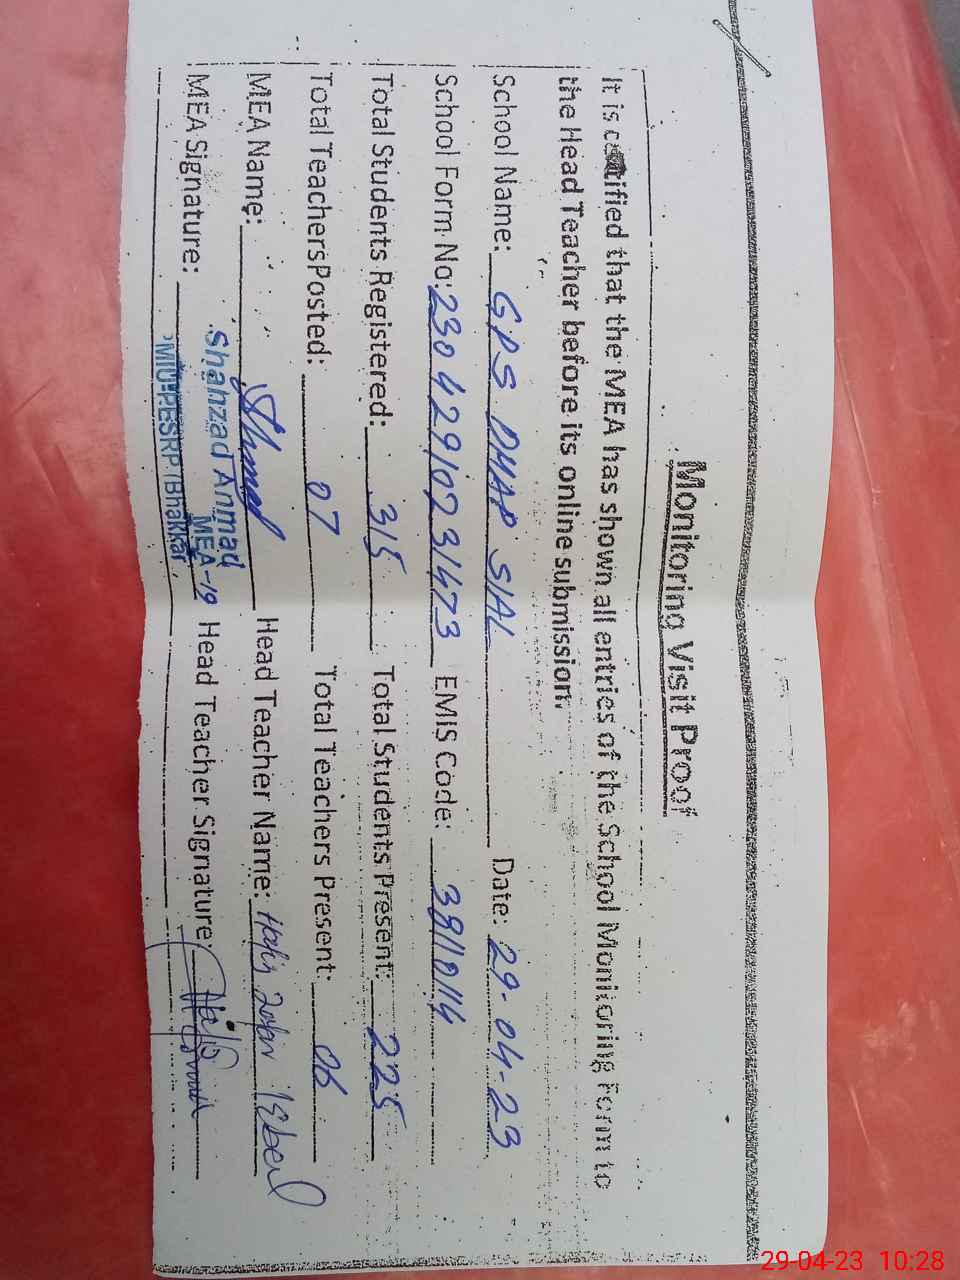 Monitoring Visit Proof
It is certified that the MEA has shown all entries of the School Monitoring Form to
the Head Teacher before its online submission.
School Name: GPS DHAP SIAL Date: 29-04-23
School Form No: 23042910231473 EMIS Code: 38110114
Total Students Registered: 315 Total Students Present: 225
Total TeachersPosted: 07 Total Teachers Present: 06
MEA Name: Ahmad Head Teacher Name: Hafiz Iqbal
MEA Signature: Head Teacher Signature:
Shahzad Ahmad
MEA-19
MIU:PESRP/Bhakkar
29-04-23 10:28